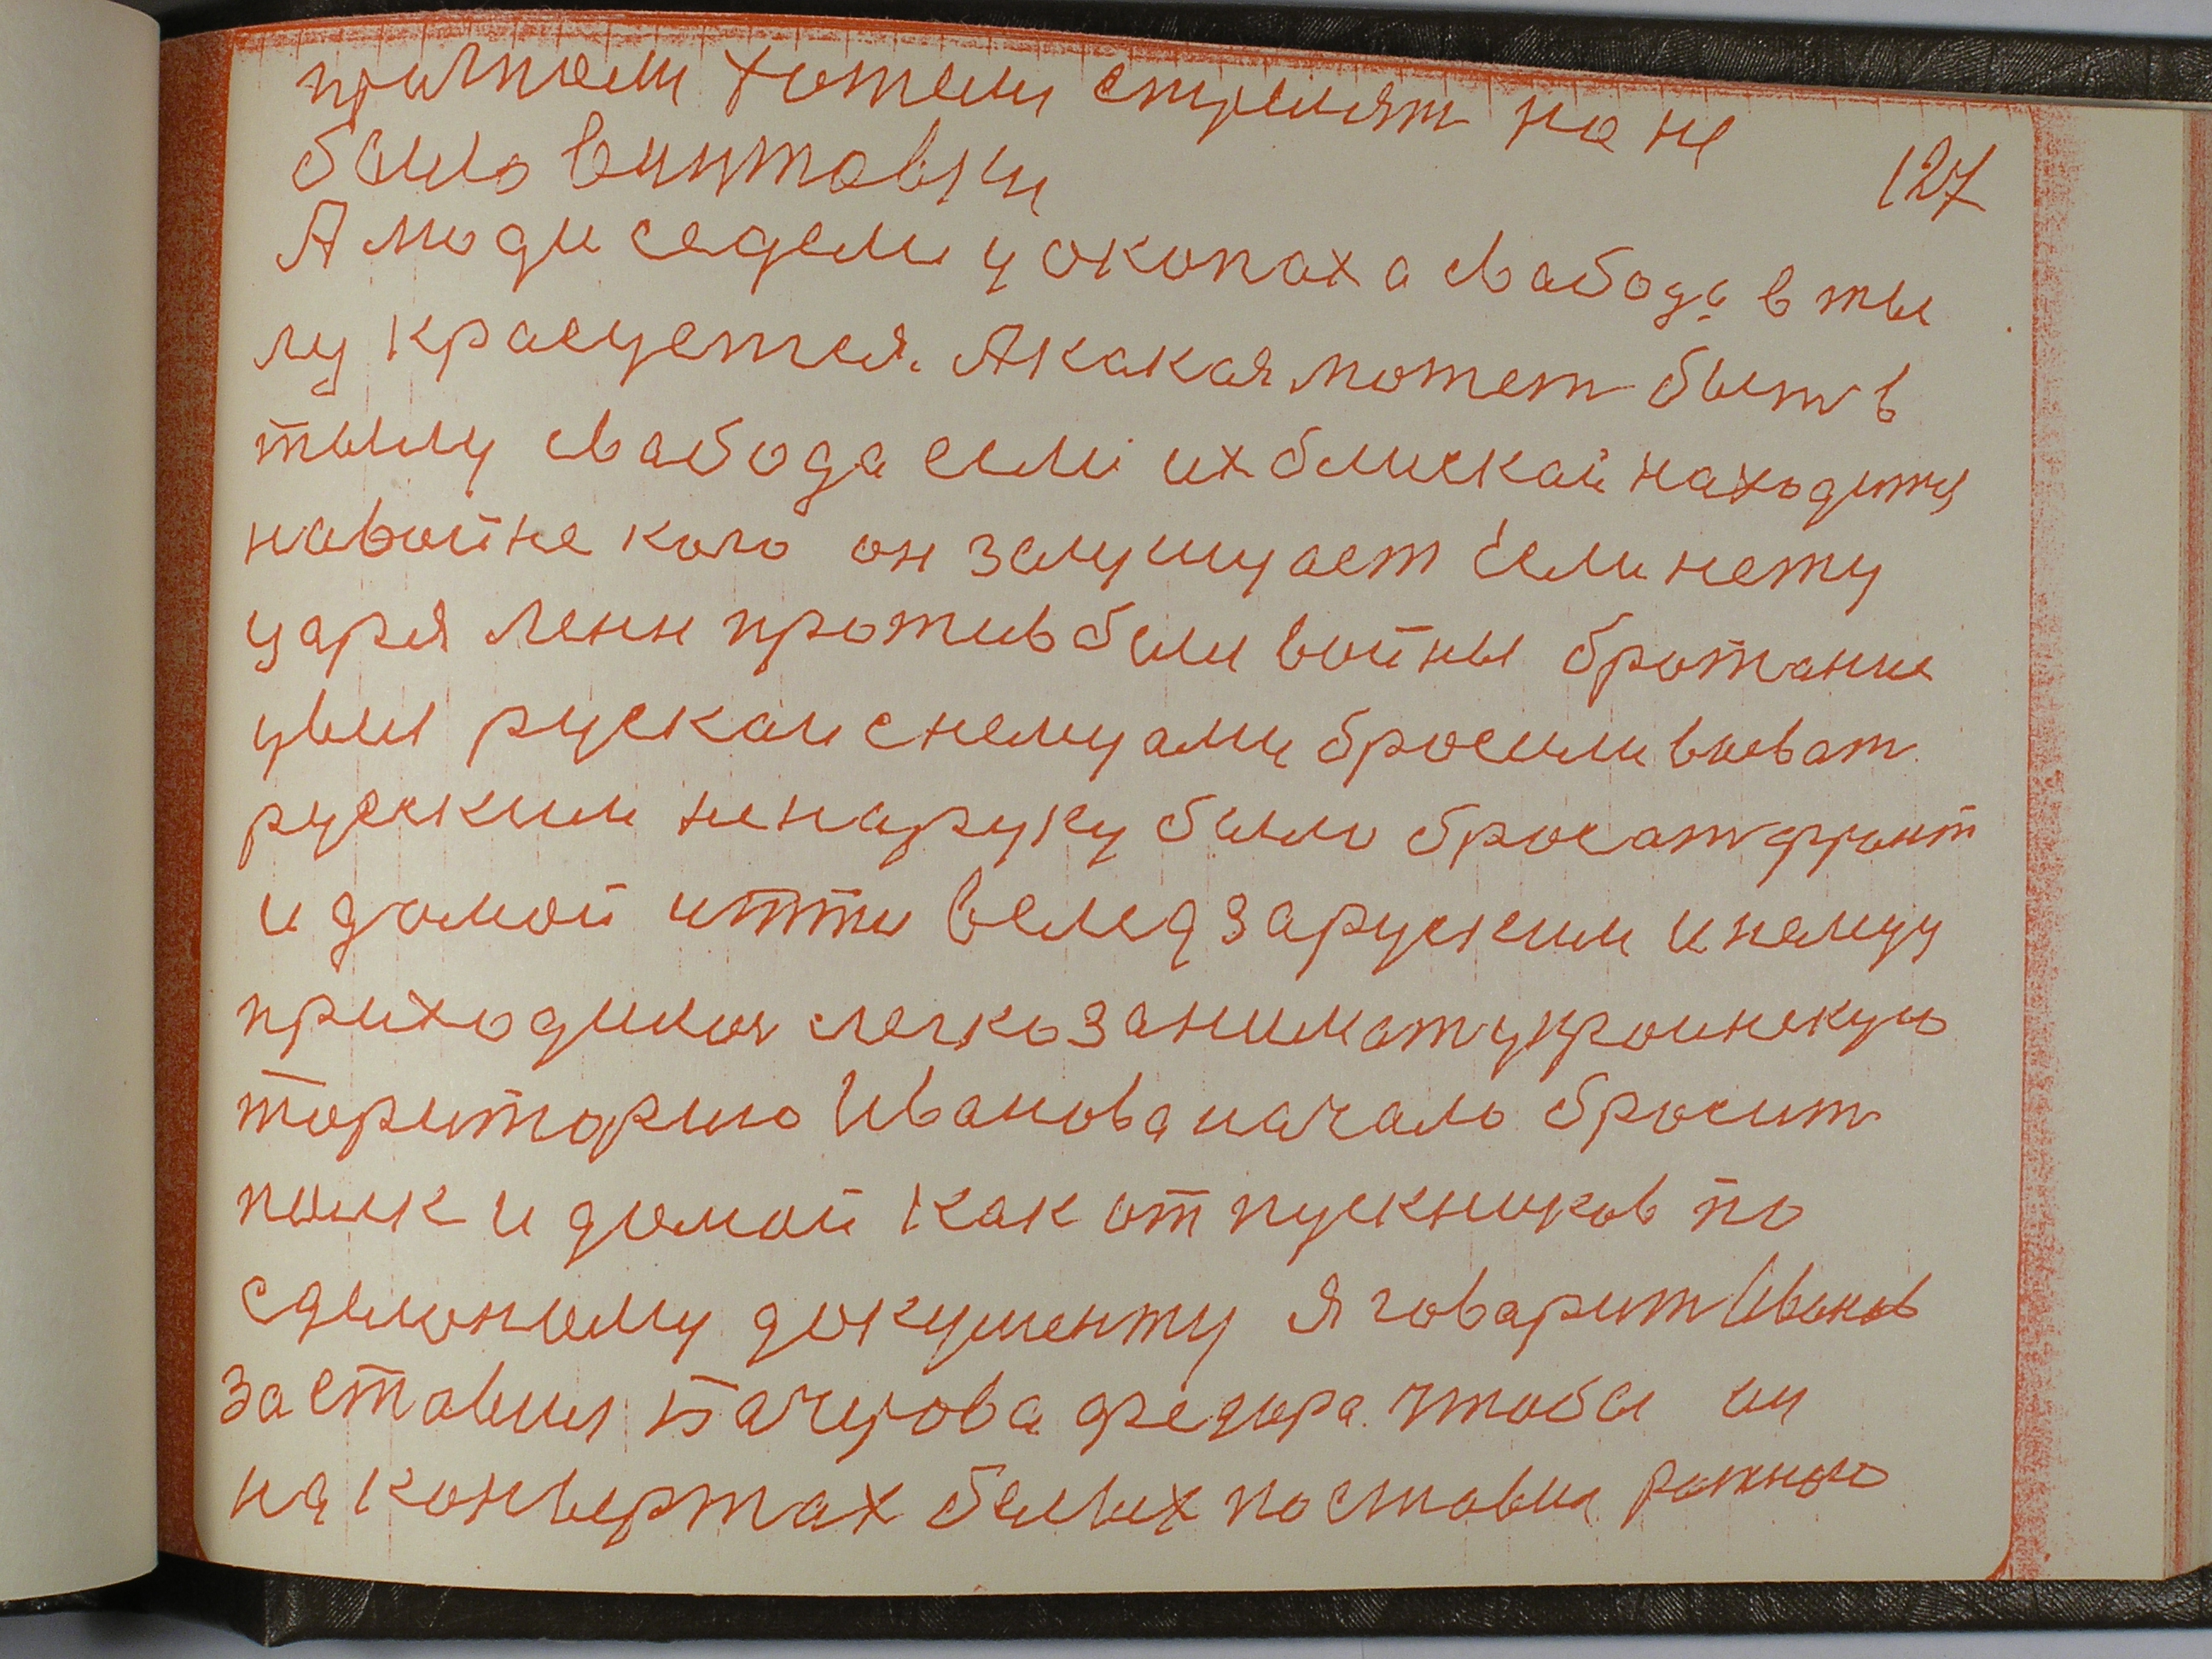 хотели стрелят но не
было винтовки
127
А люди седели у окопах а свабода в ты
лу красуется. А какаяможет быть в
тылу свабода если их блиской находится
навойне кого он защищает Если нету
царя Ленн против был войны братание
рускаи снемцами бросили воеват
руским ненаруку было бросат фронт
и домой итти вслед заруским и немцу
приходился легко занимат украинскую
тариторию Иванова начало бросит
полк и домой как отпускников по
сделоному документу я говарит Иванов
заставил Бачурова федора чтобы он
на конвертах белых поставил